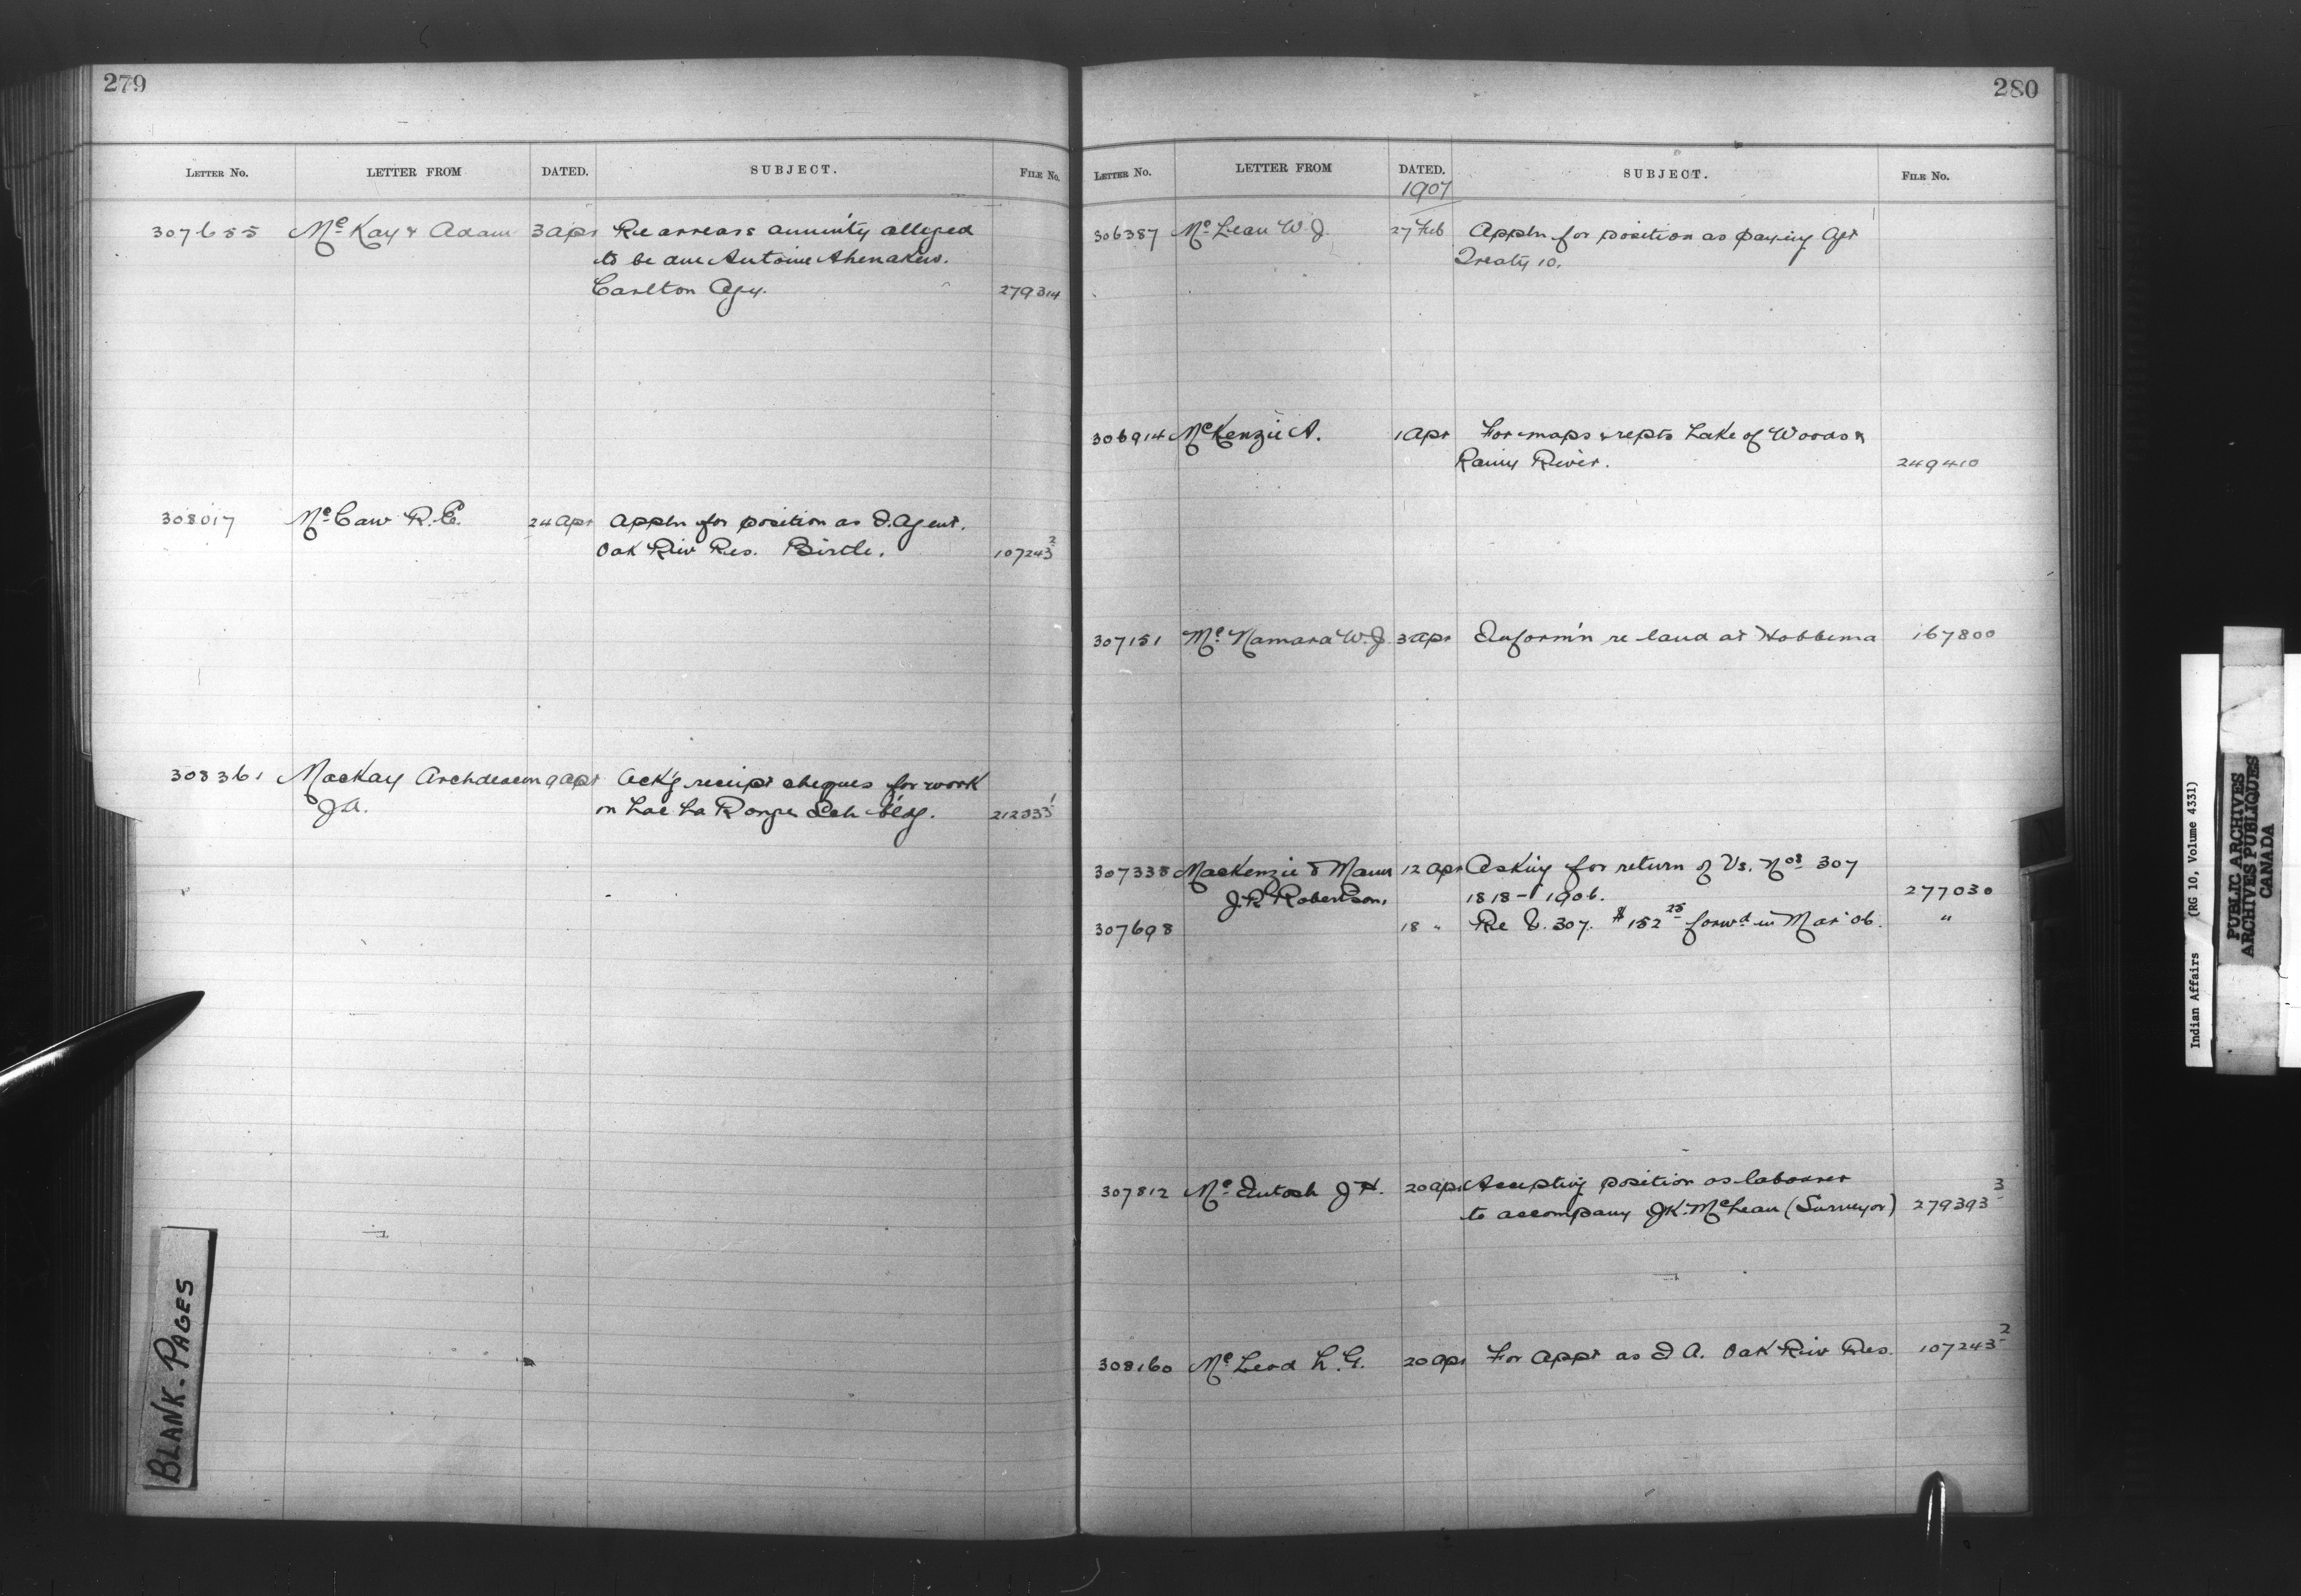 279
LETTER No. LETTER FROM DATED. SUBJECT. FILE No.
307655 McKay & Adam 3 Apr Re arrears annuity alleged
to be due Antoine Ahenakew.
Carlton Agy. 279314
308017 McCaw R.E. 24 Apr Appln for position as I. Agent.
Oak Riv Res. Birtle. 107243 2
308361 MacKay Archdeacon 9 Apr Ack'g receipt cheques for work
J.A. on Lac La Ronge Sch b'ldg. 212333 1
BLANK-PAGES
280
LETTER No. LETTER FROM DATED. SUBJECT. FILE No.
1907
306387 McLean W.J. 27 Feb Appln for position as paying Agt
Treaty 10.
306914 McKenzie A. 1 Apr For maps & repts Lake of Woods &
Rainy River. 249410
307151 McNamara W.J. 3 Apr Inform'n re land at Hobbema 167800
307338 MacKenzie & Mann 12 Apr Asking for return of Vs. Nos 307
J.R. Robertson. 1818 - 1906. 277030
307698 18 " Re V. 307. $152 25 forwd in Mar '06. "
307812 McIntosh J H. 20 Apr Accepting position as labourer
to accompany J.K. McLean (Surveyor) 279393 3
308160 McLeod L.G. 20 Apr For appt as I A. Oak Riv Res. 107243 2
Indian Affairs (RG 10, Volume 4331)
PUBLIC ARCHIVES
ARCHIVES PUBLIQUES
CANADA